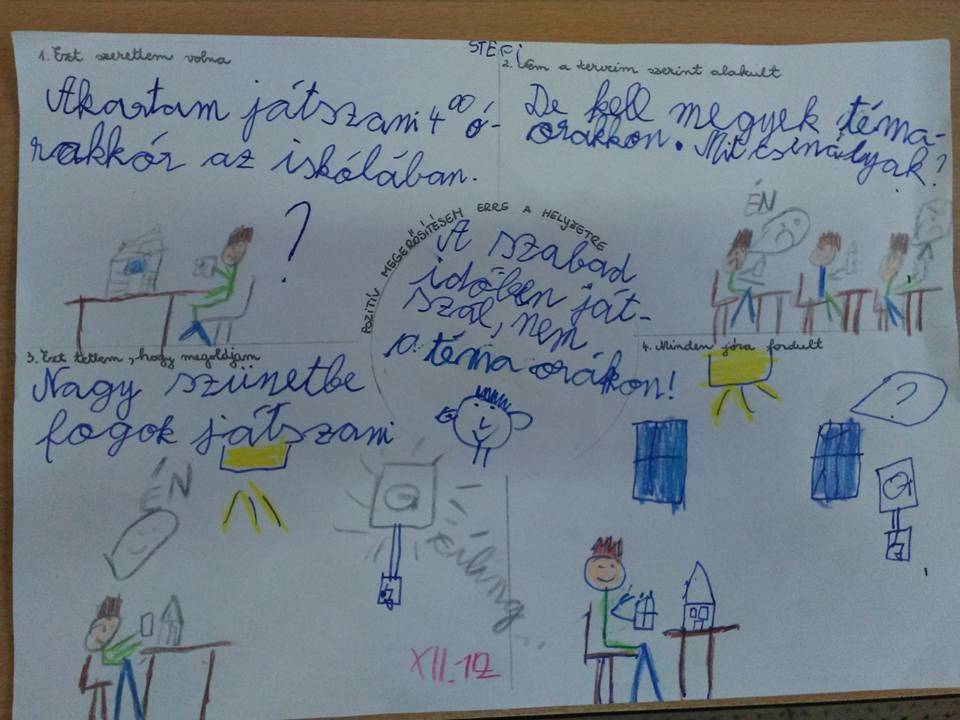 STEFI
1. Ezt szerettem volna
Akartam játszani 4⁰⁰ ó-
rakkór az iskólában.
?
2. Nem a terveim szerint alakult
De kell megyek téma-
orákkon. Mit csinályak?
ÉN
POZITÍV MEGERŐSÍTÉSEM ERRE A HELYZETRE
A szabad
időben ját-
szál, nem
a téma orákon!
3. Ezt tettem, hogy megoldjam
Nagy szünetbe
fogok játszani
ÉN
XII. 12
4. Minden jóra fordult
?